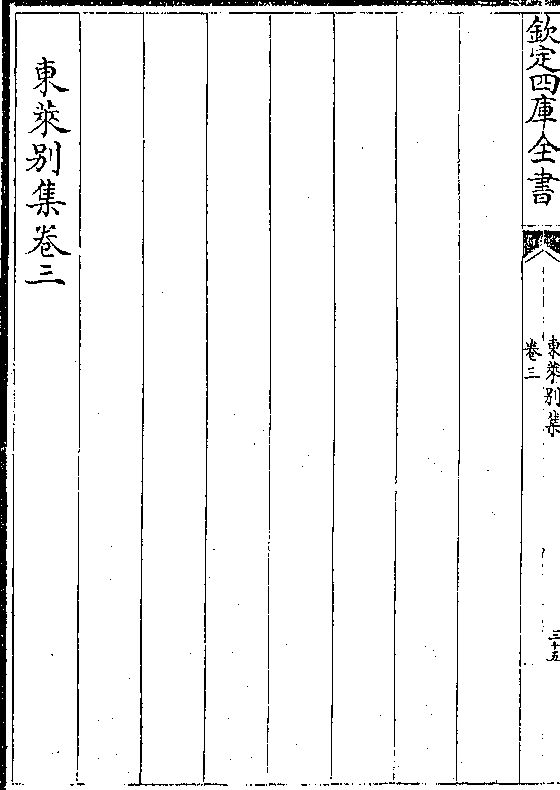 欽定四庫全書
東萊別集
卷三
三十五
東萊別集卷三